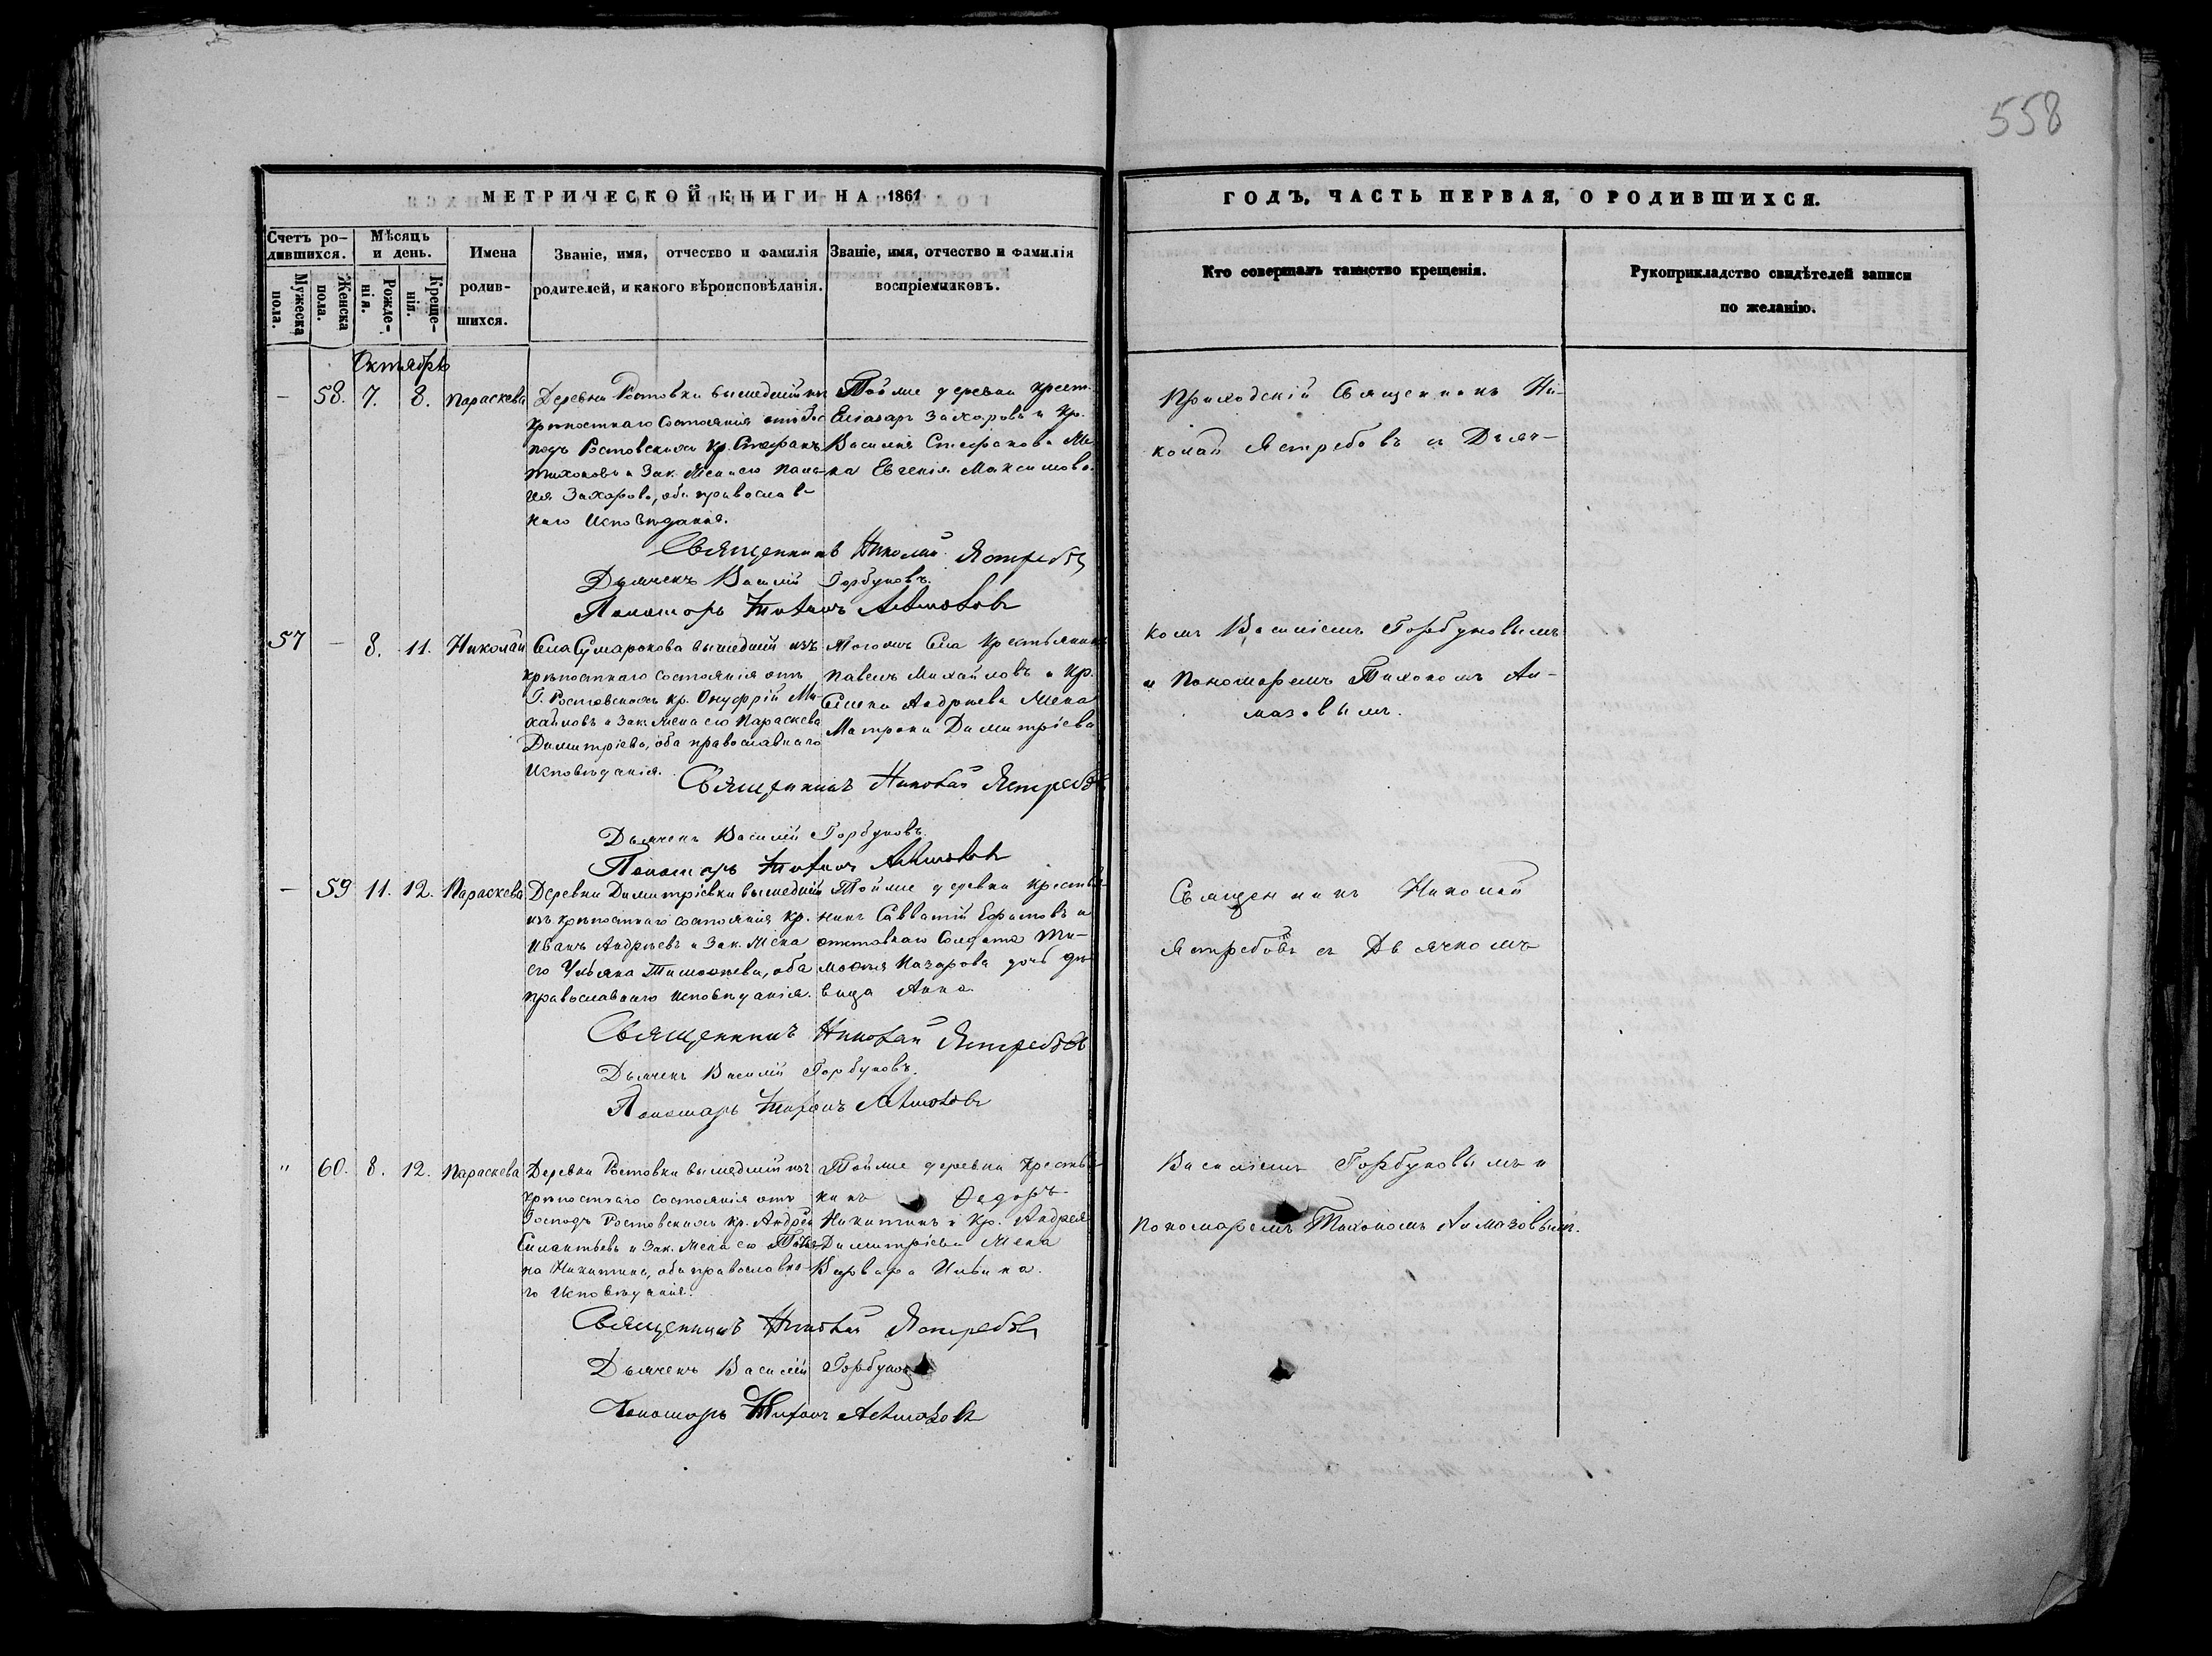 558
МЕТРИЧЕСКОЙ КНИГИ НА 1861
Счетъ ро-
дившихся.
Мѣсяцъ
и день.
Мужеска
пола.
Женска
пола.
Рожде-
нія.
Креще-
нія.
Имена
родив-
шихся.
Званіе, имя, отчество и фамилія
родителей, и какого вѣроисповѣданія.
Званіе, имя, отчество и фамилія
воспріемниковъ.
Октябрь
— 58. 7. 8. Параскева
Деревни Ростовки вышедшій изъ
крѣпостнаго состоянія отъ Гос
подъ Ростовскихъ кр. Стефанъ
Тихоновъ и Зак. Жена его
Захарова, оба православ-
наго Исповѣданія.
Тойже деревни крест.
Еліазаръ Захаровъ и Кр.
Василія Стефанова Же-
на Евгенія Максимова.
Священникъ Николай Ястребовъ
Дьячекъ Василій Горбуновъ.
Пономарь Тихонъ Алмазовъ
57 — 8. 11. Николай
Села Сумарокова вышедшій изъ
крѣпостнаго состоянія отъ
Г. Ростовскихъ кр. Онуфрій Ми-
хайловъ и Зак. Жена его Параскева
Димитріева, оба православнаго
Исповѣданія.
Тогожъ Села Крестьянинъ
Павелъ Михайловъ и Кр.
Андреева Жена
Матрона Димитріева
Священникъ Николай Ястребовъ
Дьячекъ Василій Горбуновъ.
Пономарь Тихонъ Алмазовъ
— 59 11. 12. Параскева
Деревни Димитріевки вышедшій
изъ крѣпостнаго состоянія Кр.
Иванъ Андреевъ и Зак. Жена
его Ульяна Тимоѳеева, оба
православнаго исповѣданія.
Тойже деревни Крестья-
нинъ Савватій Ефимовъ и
отставнаго Солдата Ти-
моѳея Назарова дочь дѣ-
вица Анна.
Священникъ Николай Ястребовъ
Дьячекъ Василій Горбуновъ.
Пономарь Тихонъ Алмазовъ
" 60. 8. 12. Параскева
Деревни Ростовки вышедшій изъ
крѣпостнаго состоянія отъ
Господъ Ростовскихъ кр. Андрей
Силантьевъ и Зак. Жена его
Никитина, оба православна-
го Исповѣданія.
Тойже деревни Крестья-
нинъ Ѳедоръ
Никитинъ и Кр. Андрея
Димитріева Жена
Варвара Ильина.
Священникъ Николай Ястребовъ
Дьячекъ Василій Горбуновъ
Пономарь Тихонъ Алмазовъ
ГОДЪ, ЧАСТЬ ПЕРВАЯ, О РОДИВШИХСЯ.
Кто совершалъ таинство крещенія.
Рукоприкладство свидѣтелей записи
по желанію.
Приходскій Священникъ Ни-
колай Ястребовъ съ Дьяч-
комъ Василіемъ Горбуновымъ
и Пономаремъ Тихономъ Ал-
мазовымъ.
Священникъ Николай
Ястребовъ съ Дьячкомъ
Василіемъ Горбуновымъ и
Пономаремъ Тихономъ Алмазовымъ.